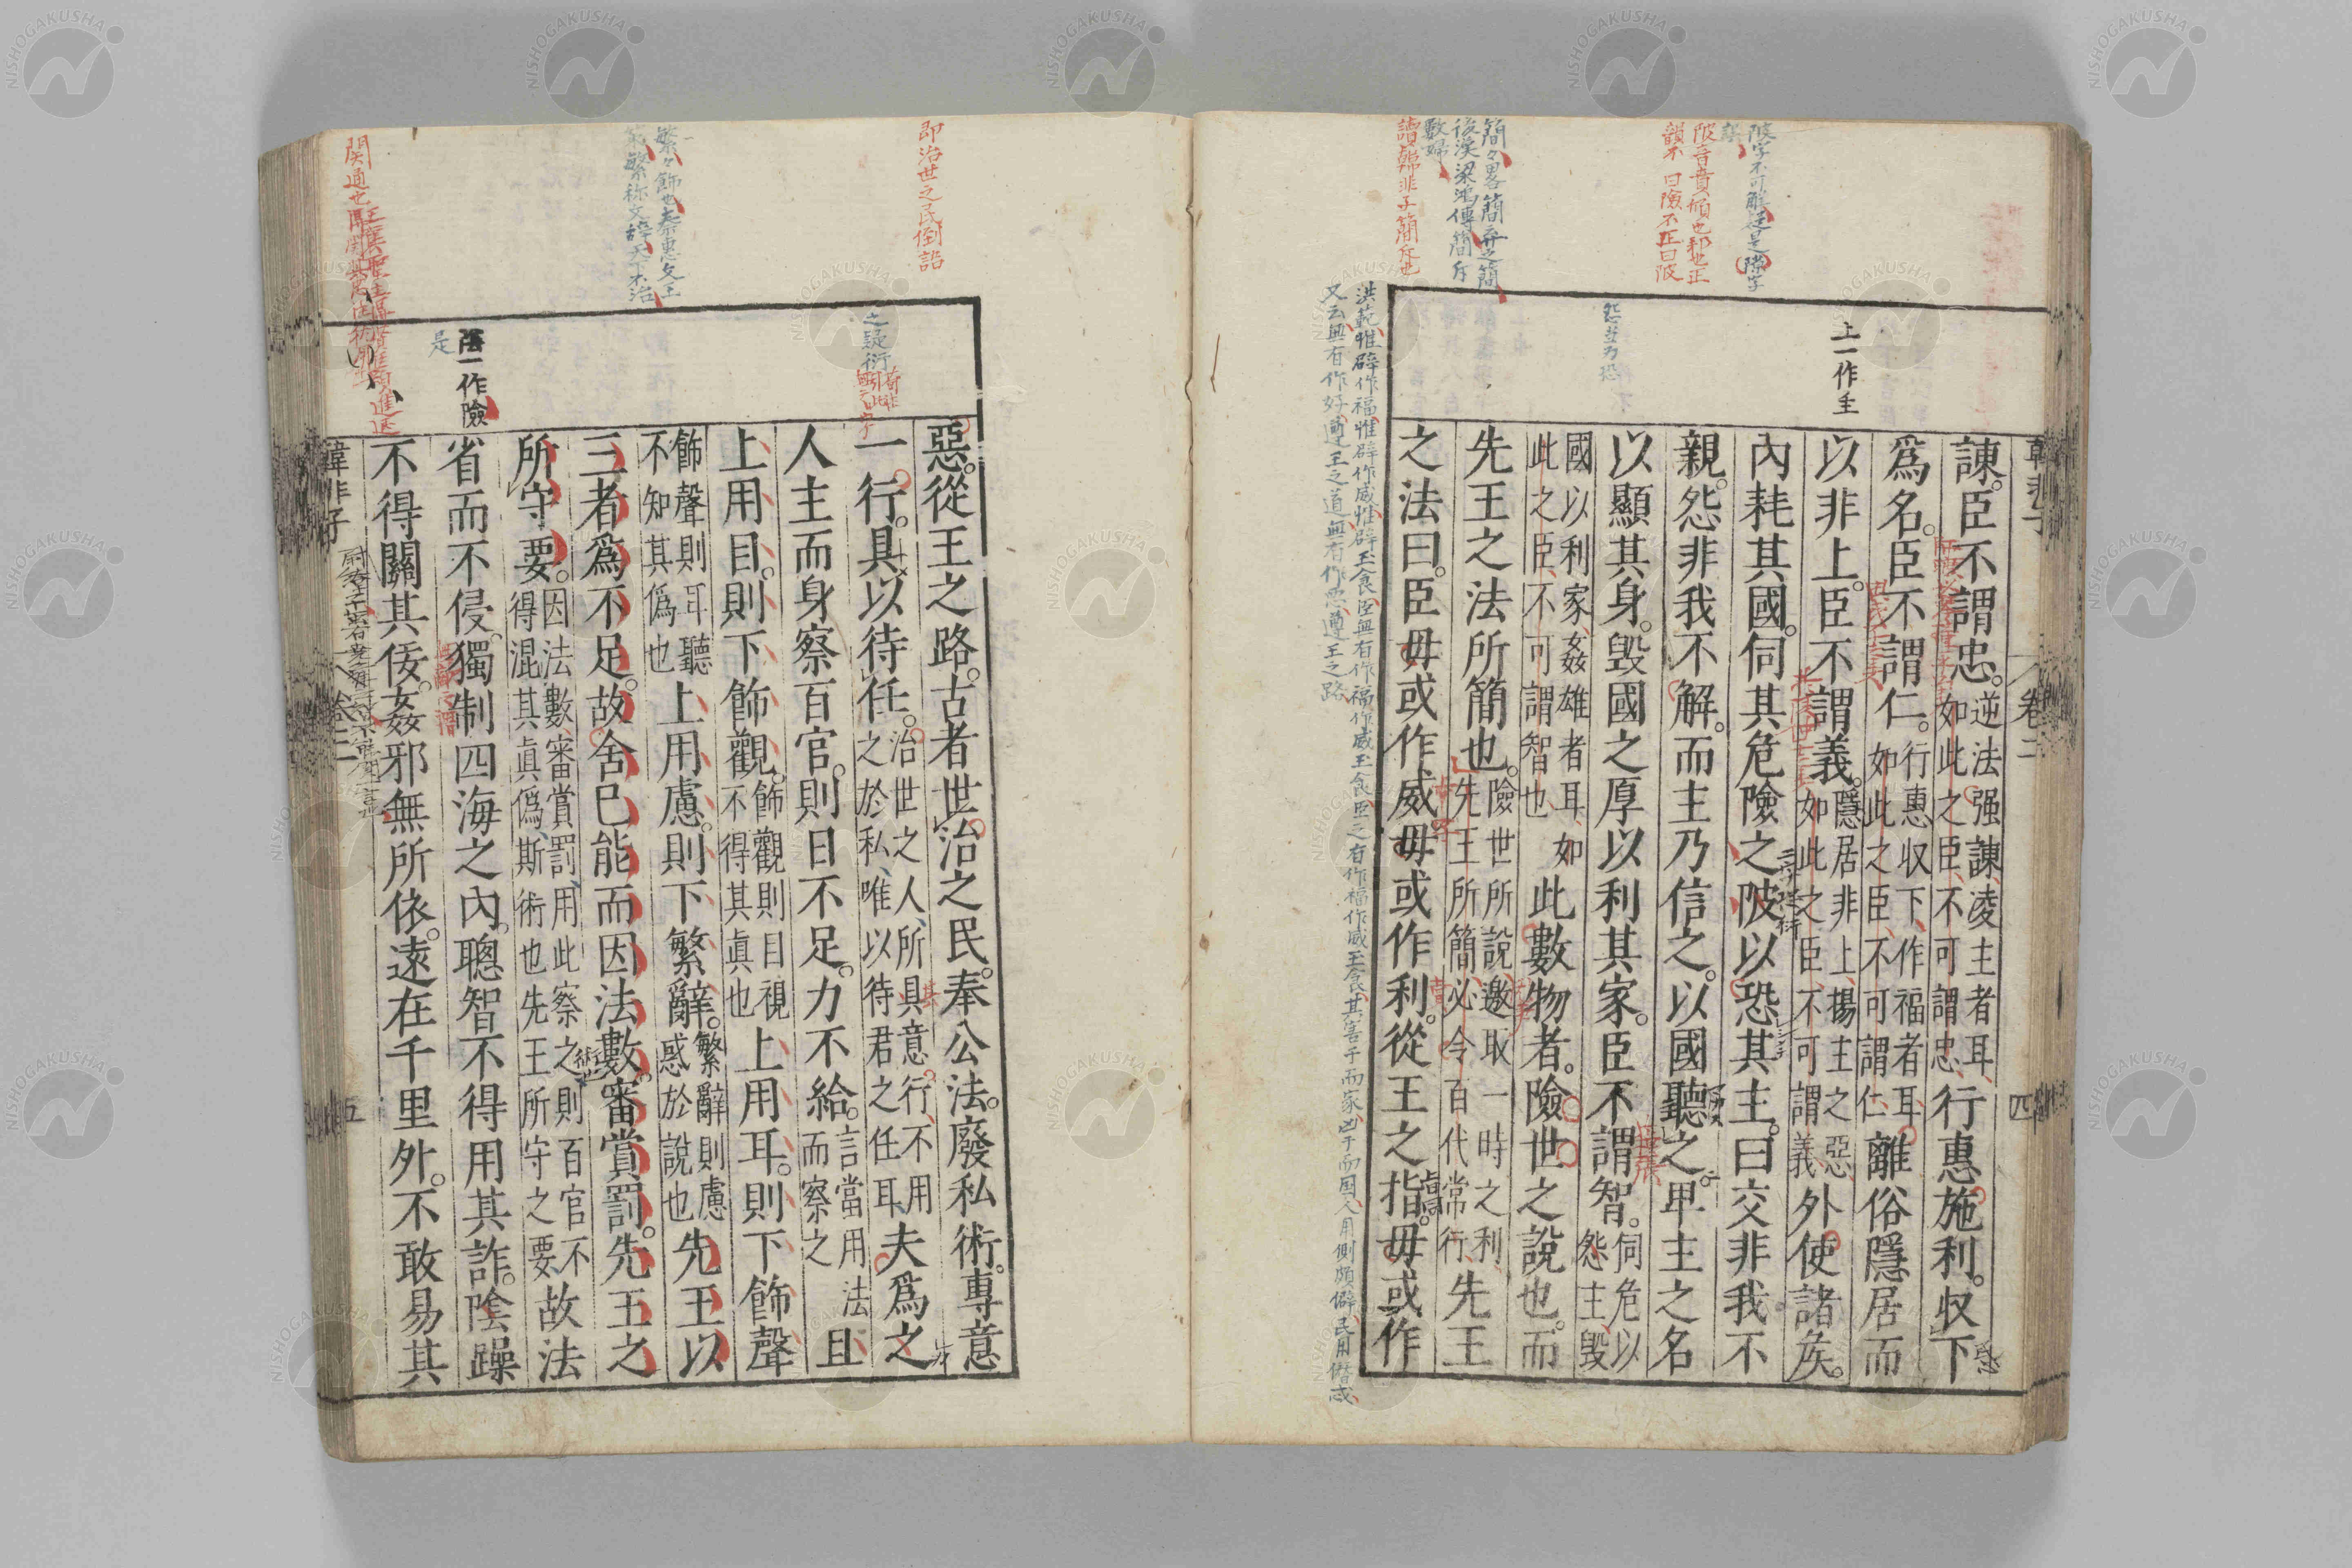 韓非子 卷二 四
陂字不可解疑是際字
誤
陂音賁傾也邪也正
韻不曰險不正曰陂
簡々畧簡弃之簡
後漢梁鴻傳簡斥
數婦
讀韓非子簡斥也
上一作主
怨並乃恐
諫。臣不謂忠。逆法强諫、凌主者耳、如此之臣、不可謂忠、行惠施利。収下
爲名。臣不謂仁。行惠収下、作福者耳、如此之臣、不可謂仁、離俗隱居而
以非上。臣不謂義。隱居非上、揚主之惡、如此之臣、不可謂義、外使諸矦。
內耗其國。伺其危險之陂以恐其主。曰交非我不
親。怨非我不解。而主乃信之。以國聽之。卑主之名
以顯其身。毀國之厚以利其家。臣不謂智。伺危以怨主、毀
國以利家、姦雄者耳、如此之臣、不可謂智也 此數物者。險世之說也。而
先王之法所簡也。險世所說、邀取一時之利、先王所簡、必令百代常行、先王
之法曰。臣毋或作威。毋或作利。從王之指。毋或作
洪範惟辟作福惟辟作威惟辟玉食臣無有作福作威玉食臣之有作福作威玉食其害于而家凶于而国人用側頗僻民用僭忒
又云無有作好遵王之道無有作惡遵王之路
即治世之民倒語
之疑衍
繁々飾也秦惠文王
繁称文辞天下不治
陰一作險
是
惡。從王之路。古者世治之民。奉公法。廢私術。專意
一行。具以待任。治世之人、所具意行、不用之於私、唯以待君之任耳、夫爲之
人主而身察百官。則日不足。力不給。言當用法而察之 且
上用目。則下飾觀。飾觀則目視不得其眞也 上用耳。則下飾聲
飾聲則耳聽不知其僞也 上用慮。則下繁辭。繁辭則慮惑於說也 先王以
三者爲不足。故舍己能而因法數。審賞罰。先王之
所守要。因法數、審賞罰、用此察之、則百官不得混其眞僞、斯術也先王所守之要 故法
省而不侵。獨制四海之內。聰智不得用其詐。陰躁
不得關其佞。姦邪無所依。遠在千里外。不敢易其
韓非子 卷二 五
NISHOGAKUSHA